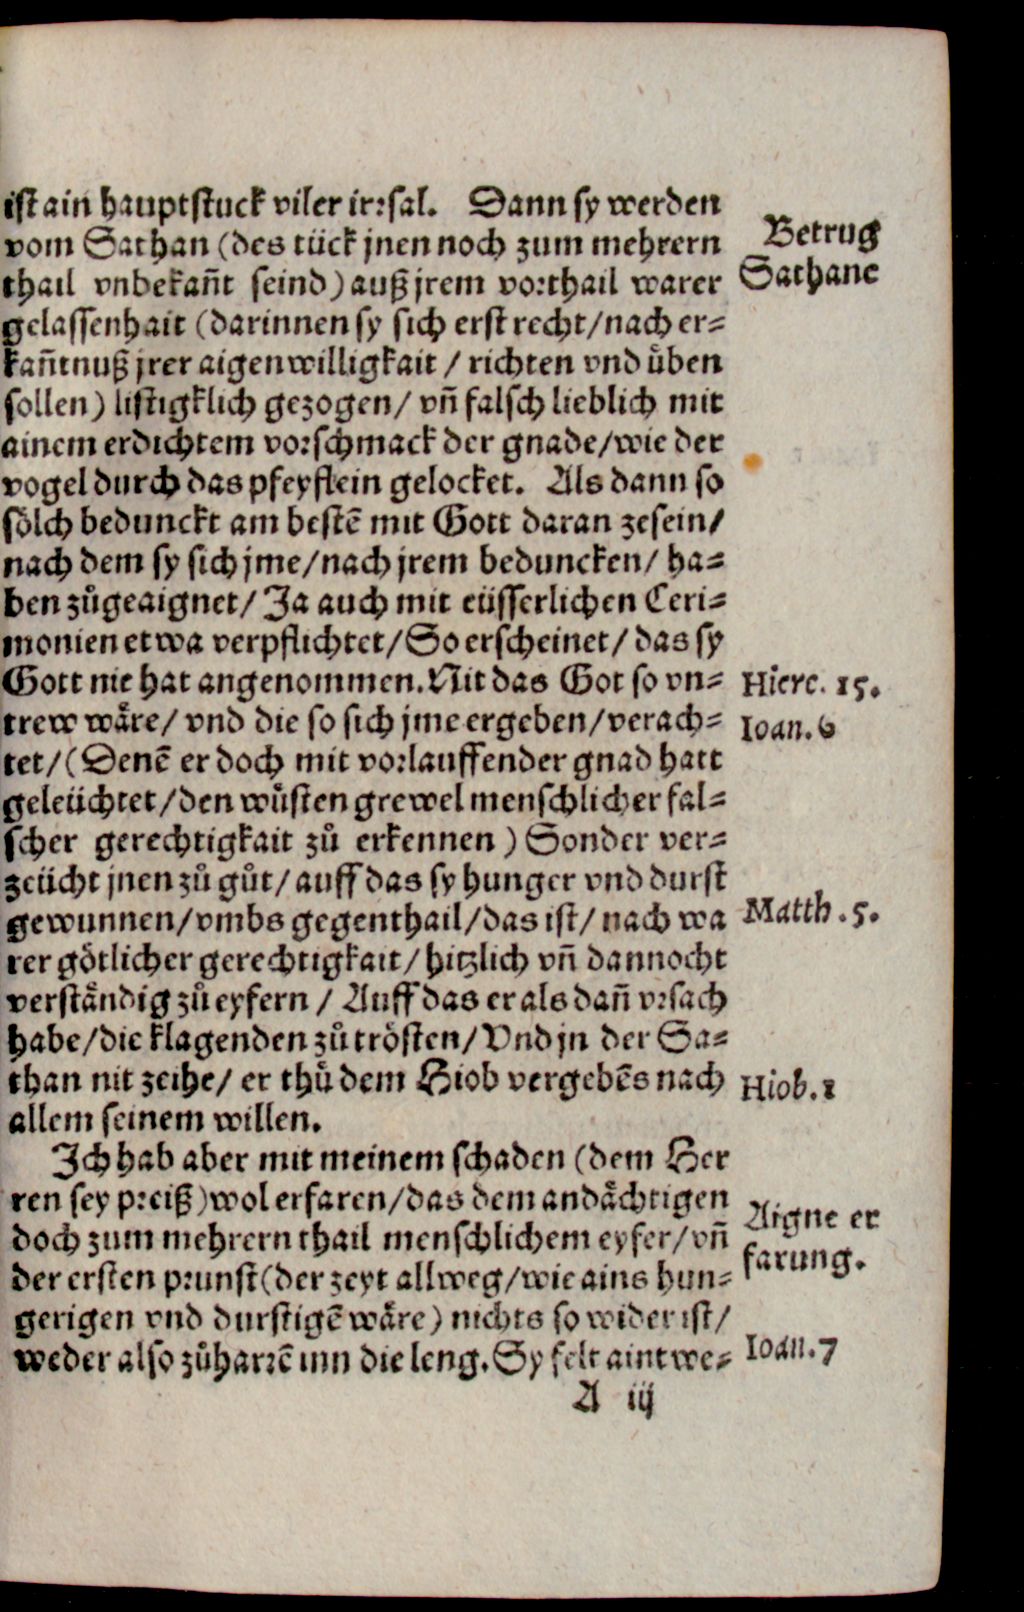 ist ain hauptstuck viler irꝛsal. Dann sy werden
vom Sathan (des tück jnen noch zum mehrern
thail vnbekañt seind) auß jrem voꝛthail warer
gelassenhait (darinnen sy sich erst recht/nach er⸗
kañtnuß jrer aigenwilligkait / richten vnd uͤben
sollen) listigklich gezogen/ vñ falsch lieblich mit
ainem erdichtem voꝛschmack der gnade/wie der
vogel durch das pfeyflein gelocket. Als dann so
soͤlch bedunckt am bestẽ mit Gott daran zesein/
nach dem sy sich jme/nach jrem beduncken/ ha⸗
ben zuͦgeaignet/ Ja auch mit eüsserlichen Ceri⸗
monien etwa verpflichtet/So erscheinet/ das sy
Gott nie hat angenommen. Nit das Got so vn⸗
trew waͤre/ vnd die so sich jme ergeben/verach⸗
tet/(Denẽ er doch mit voꝛlauffender gnad hatt
geleüchtet/den wuͤsten grewel menschlicher fal⸗
scher gerechtigkait zuͦ erkennen) Sonder ver⸗
zeücht jnen zuͦ guͦt/ auff das sy hunger vnd durst
gewunnen/vmbs gegenthail/das ist/ nach wa
rer goͤtlicher gerechtigkait/ hitzlich vñ dannocht
verstaͤndig zuͦ eyfern / Auff das er als dañ vꝛsach
habe/die klagenden zuͦ troͤsten/Vnd jn der Sa⸗
than nit zeihe/ er thuͤ dem Hiob vergebẽs nach
allem seinem willen.
Ich hab aber mit meinem schaden (dem Her
ren sey pꝛeiß) wol erfaren/das dem andaͤchtigen
doch zum mehrern thail menschlichem eyfer/vñ
der ersten pꝛunst (der zeyt allweg/wie ains hun⸗
gerigen vnd durstigẽ waͤre) nichts so wider ist/
weder also zuͦharꝛẽ inn die leng. Sy felt aintwe⸗
A iij
Betrug
Sathane
Hiere. 15.
Ioan. 6
Matth. 5.
Hiob. 1
Aigne er
farung.
Ioan. 7